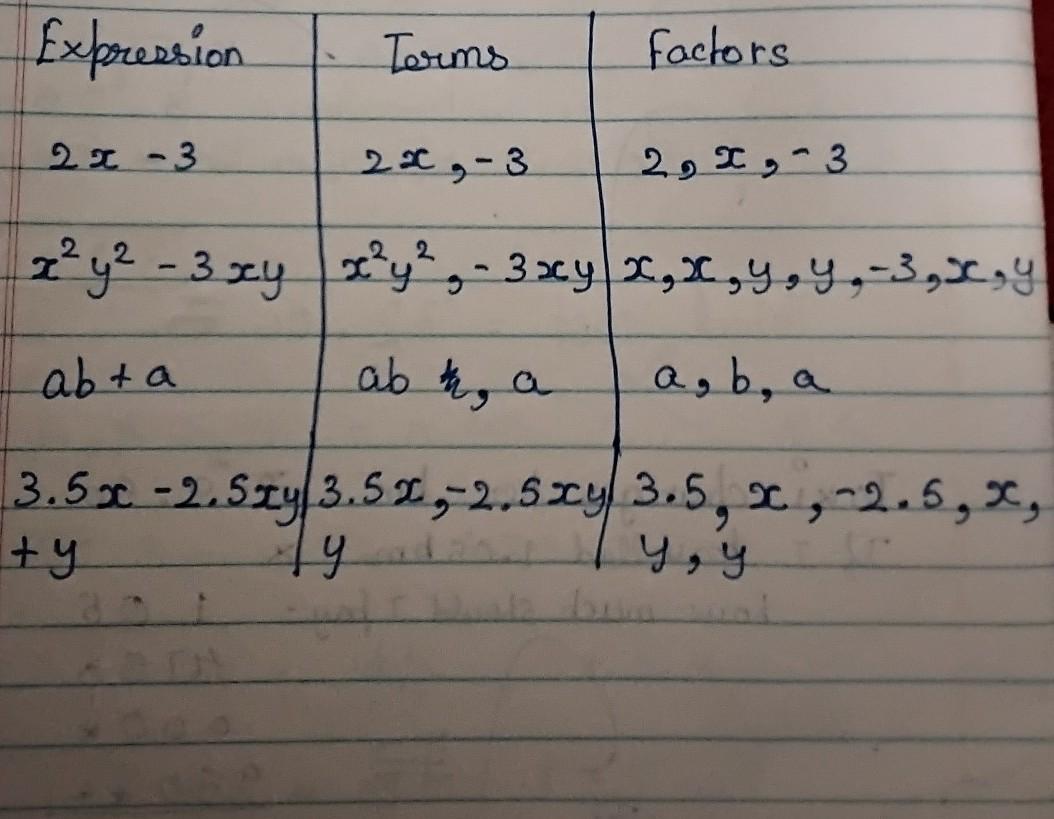 Expression Terms Factors
2x - 3 2x, -3 2, x, -3
x²y² - 3xy x²y², -3xy x, x, y, y, -3, x, y
ab + a ab , a a, b, a
3.5x - 2.5xy 3.5x, -2.5xy 3.5, x, -2.5, x,
+ y y y, y